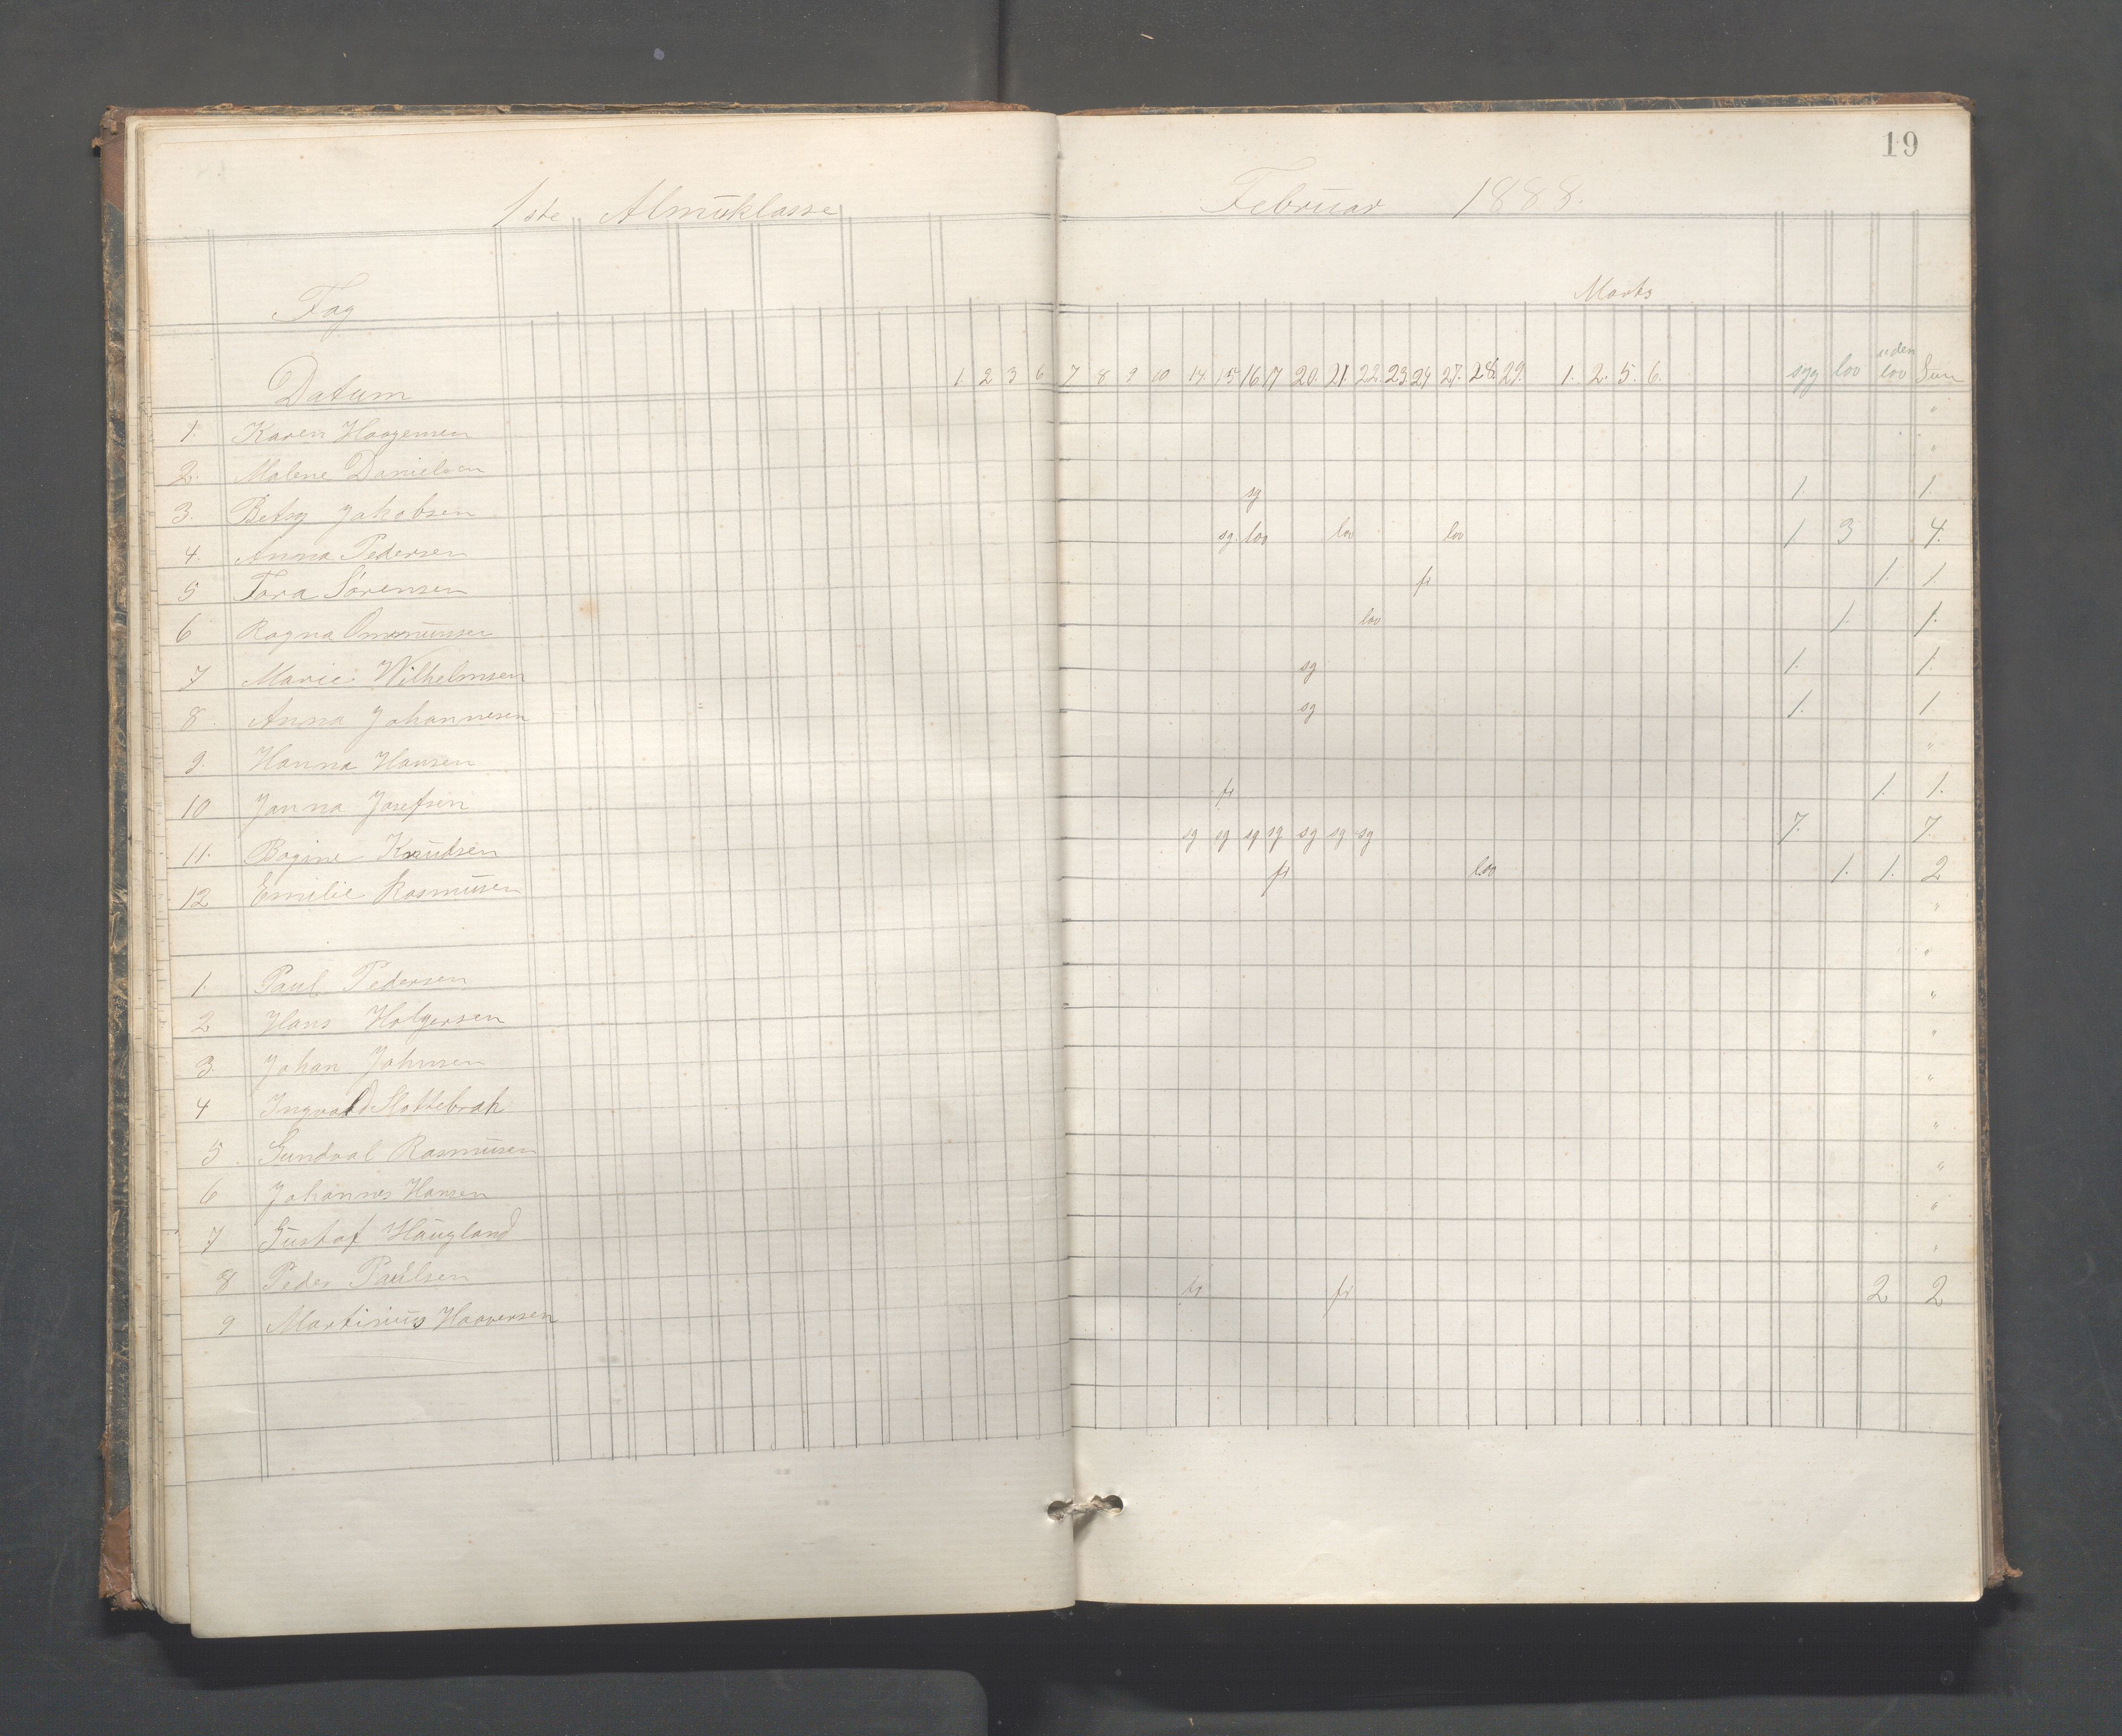 19
1ste Almuklasse Februar 1888.
Fag Marts
Datum 1 2 3 6 7 8 9 10 14. 15 16 17 20. 21. 22. 23. 24 27. 28. 29. 1. 2. 5. 6. syg lov uden lov Sum
1. Karen Haagensen "
2. Malene Danielsen "
3. Betsy Jakobsen sg 1. 1.
4. Anna Pedersen sg. lov lov lov 1. 3 4.
5 Tora Sørensen fr 1. 1.
6 Ragna Ommunsen lov 1. 1.
7 Marie Wilhelmsen sg 1. 1.
8. Anna Johannesen sg 1. 1
9. Hanna Hansen "
10 Janna Josefsen fr 1. 1.
11. Bogine Knudsen sg sg sg sg sg sg sg 7. 7
12 Emilie Rasmusen fr lov 1. 1. 2
"
1. Paul Pedersen "
2 Hans Holgersen "
3. Johan Johnsen "
4 Ingvald Slottebrak "
5. Gundval Rasmusen "
6 Johannes Hansen "
7 Gustaf Haugland "
8 Peder Paulsen "
9 Martinius Haaversen fr fr 2 2